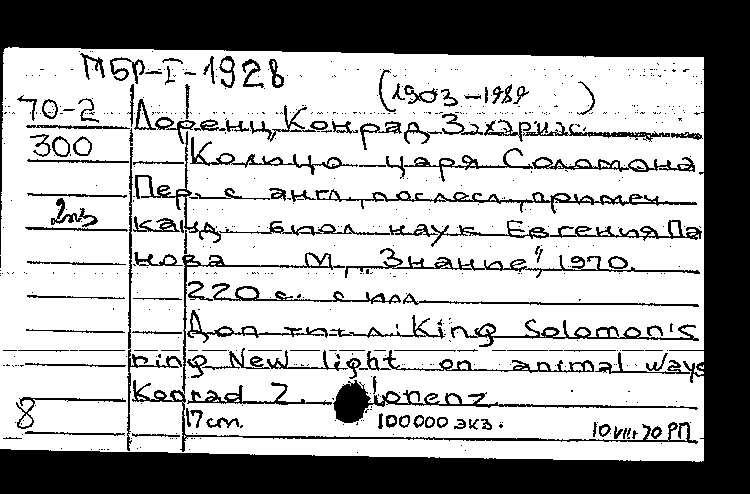 МБР-I-1928
(1903-1989)
70-2 Лоренц, Конрад Зэхэриэс.
300 Кольцо царя Соломона.
Пер. с англ., послесл., примеч.
2 экз канд. биол наук Евгения Па
нова М., „Знание", 1970.
220 с. с илл
Доп тит л: King Solomon's
ring New light on animal ways
Konrad Z. Lorenz.
8 17 cm. 100000 экз. 10 VIII 70 РП